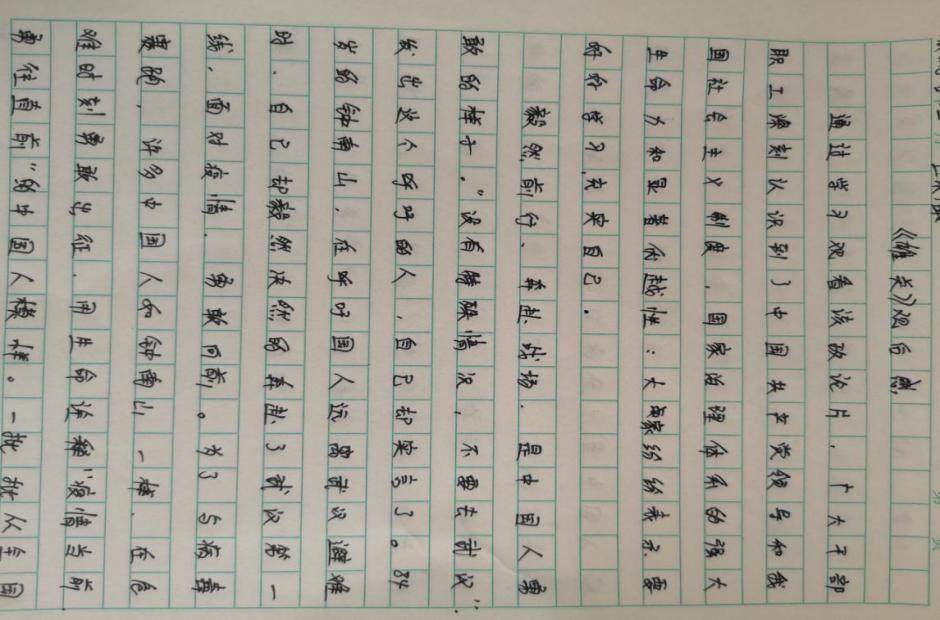 《雄关》观后感
通过学习观看该政论片，广大干部
职工深刻认识到了中国共产党领导和我
国社会主义制度、国家治理体系的强大
生命力和显著优越性；大家纷纷表示要
好好学习，充实自己。
毅然前行、奔赴战场，是中国人勇
敢的样子。“没有特殊情况，不要去武汉”，
发出这个呼吁的人，自己却食言了。84
岁的钟南山，在呼吁国人远离武汉避难
时，自己却毅然决然的奔赴了武汉第一
线，面对疫情，勇敢向前。为了与病毒
赛跑，许多中国人如钟南山一样，在危
难时刻勇敢出征，用生命诠释“疫情当前
勇往直前”的中国人模样。一批批从全国